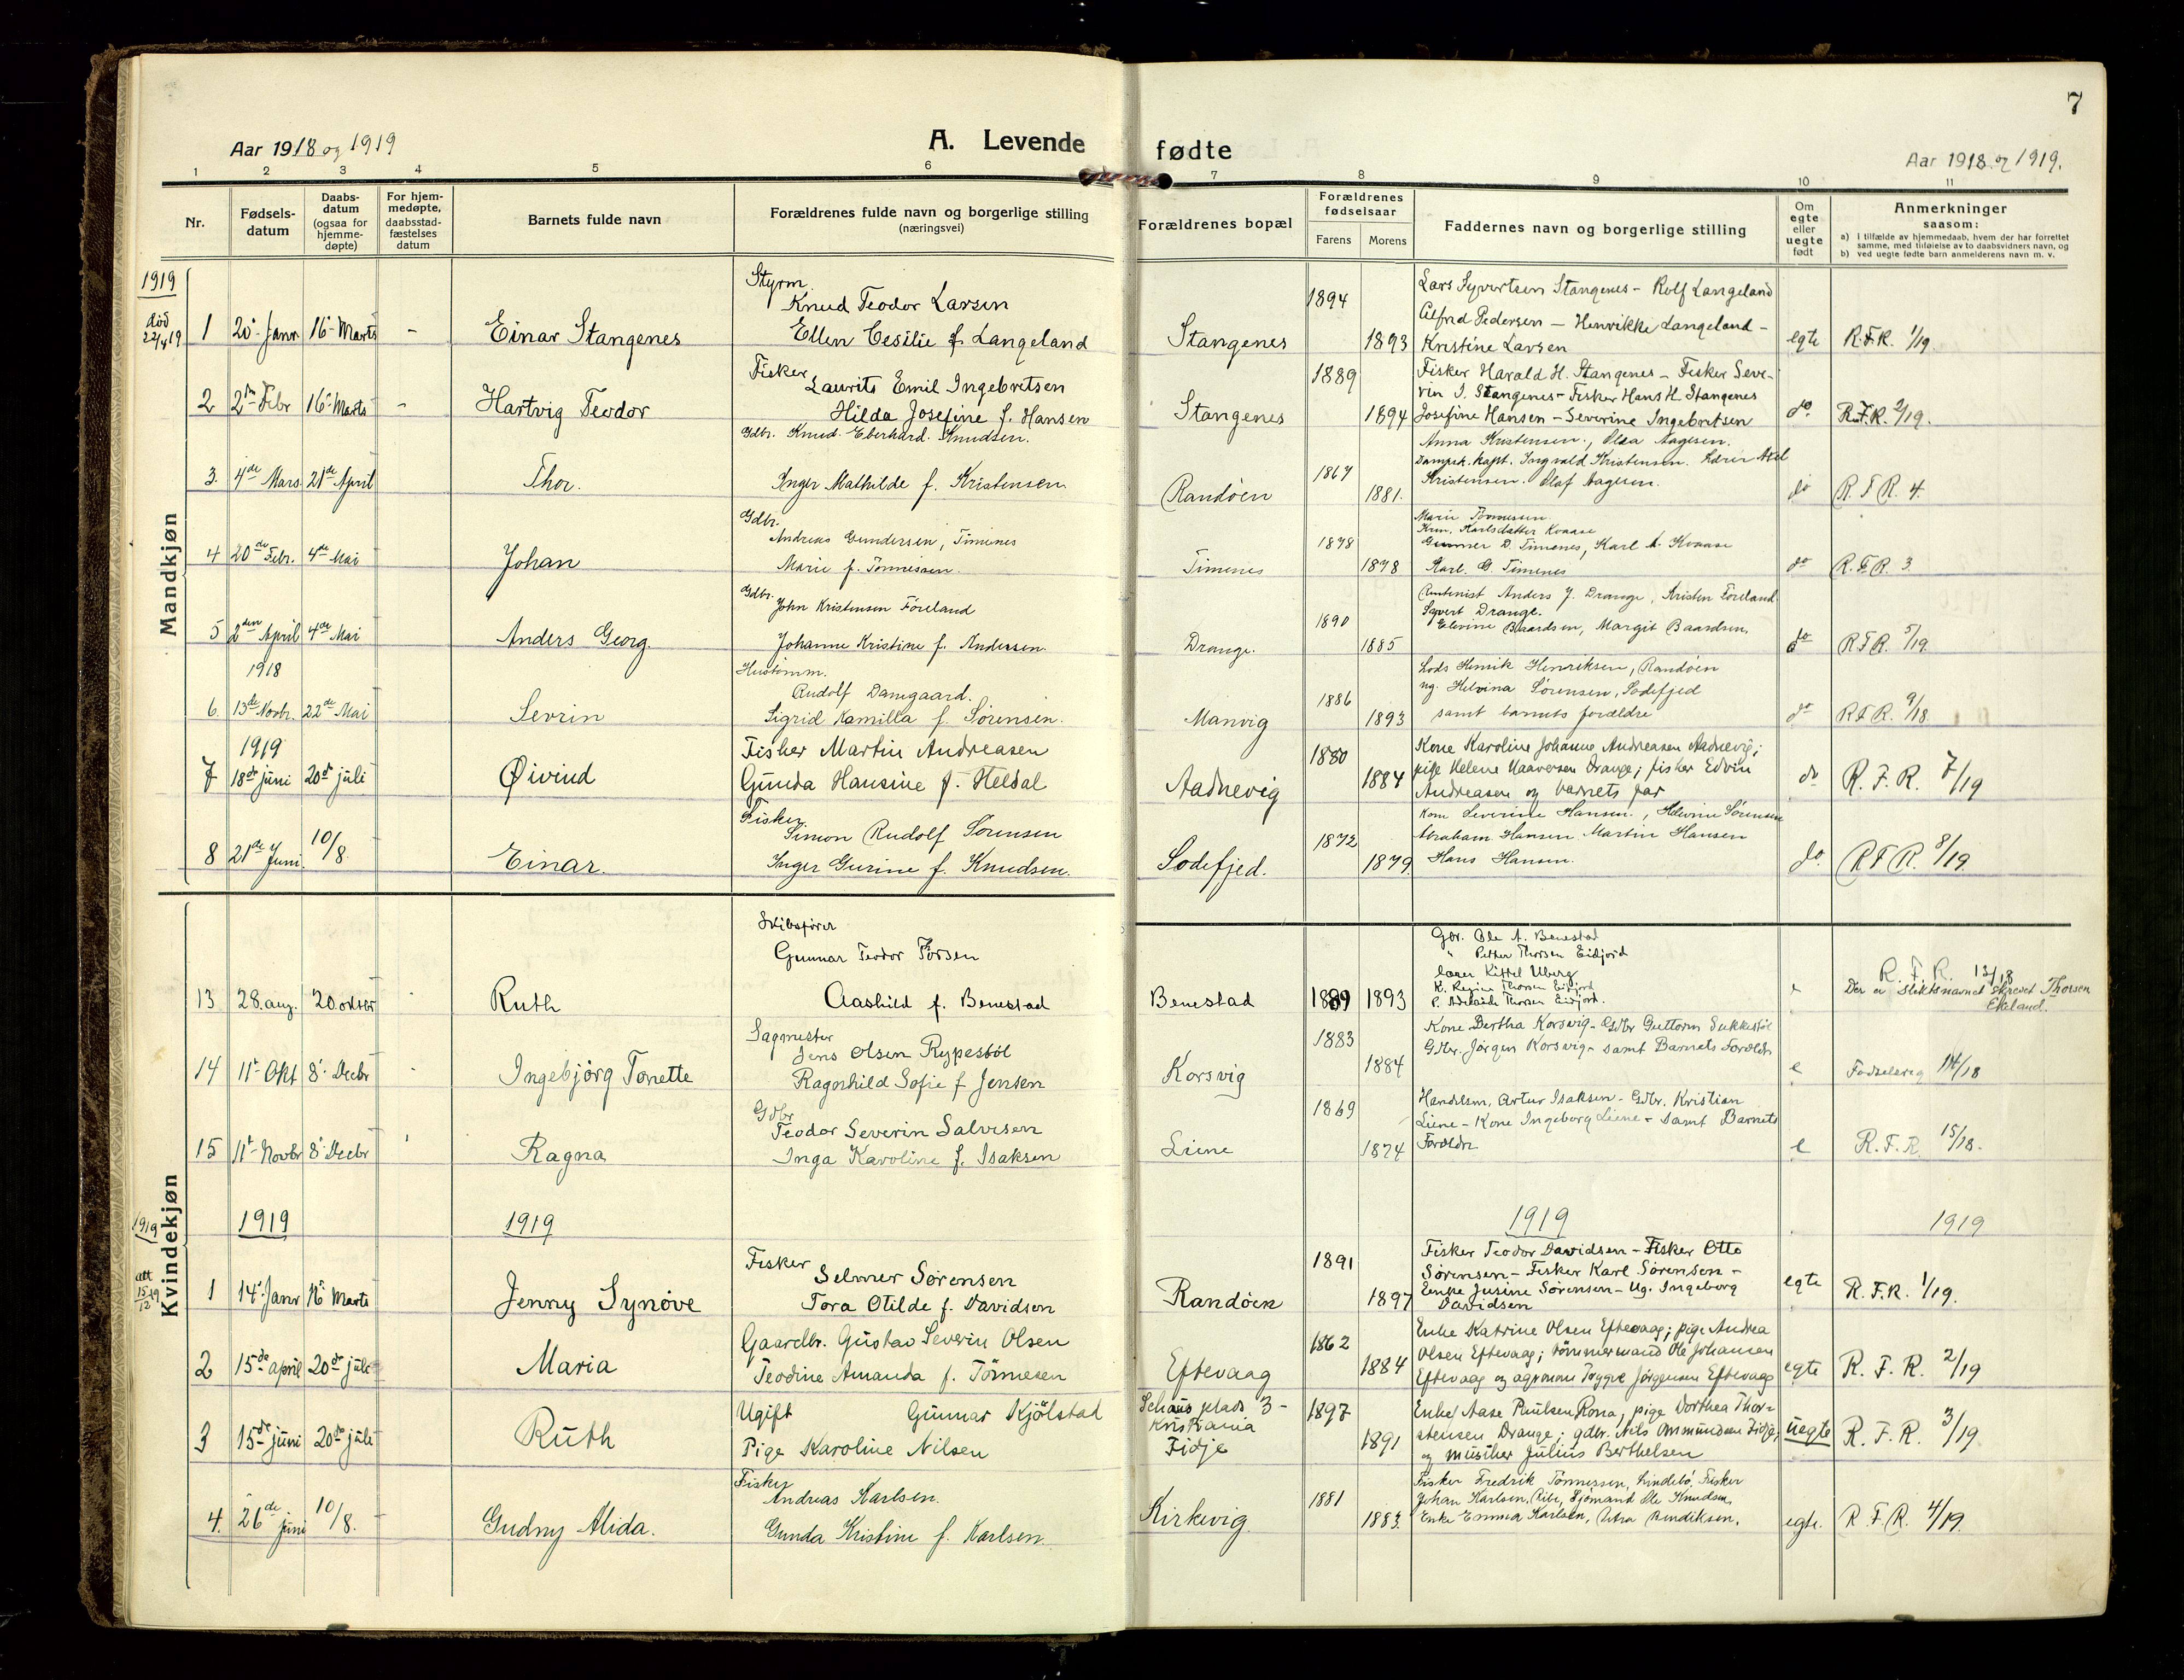 7
Aar 1918 og 1919
A. Levende fødte
Aar 1918 og 1919.
1 2 3 4 5 6 7 8 9 10 11
Nr.
Fødsels-
datum
Daabs-
datum
(ogsaa for
hjemme-
døpte)
For hjem-
medøpte,
daabsstad-
fæstelses
datum
Barnets fulde navn
Forældrenes fulde navn og borgerlige stilling
(næringsvei)
Forældrenes bopæl
Forældrenes
fødselsaar
Farens Morens
Faddernes navn og borgerlige stilling
Om
egte
eller
uegte
født
Anmerkninger
saasom:
a) I tilfælde av hjemmedaab, hvem der har forrettet
samme, med tilføielse av to daabsvidners navn, og
b) ved uegte fødte barn anmelderens navn m. v.
Mandkjøn
1919
død
22/4 19
1 20' Janr. 16' Marts - Einar Stangenes
Styrm.
Knud Teodor Larsen
Ellen Cesilie f. Langeland
Stangenes 1894 1893
Lars Syvertsen Stangenes - Rolf Langeland
Alfred Pedersen - Henrikke Langeland -
Kristine Larsen
egte R.F.R. 1/19.
2 2den Febr 16' Marts - Hartvig Teodor
Fisker
Laurits Emil Ingebretsen
Hilda Josefine f. Hansen
Stangenes 1889 1894
Fisker Harald H. Stangenes - Fisker Seve-
rin I. Stangenes - Fisker Hans H. Stangenes
Josefine Hansen - Severine Ingebretsen
do. R.F.R. 2/19.
3. 4de Mars 21de April Thor.
Gdbr. Knud Eberhard Knudsen.
Inger Mathilde f. Kristensen.
Randøen 1867 1881.
Anna Kristensen., Olea Aagesen.
Dampsk. kapt. Ingvald Kristensen. Lærer Axel
Kristensen. Olaf Aagesen.
do R.F.R. 4.
4 20de Febr. 4de Mai Johan
Gdbr.
Andreas Gundersen, Timenes
Marie f. Tønnessen.
Timenes 1878 1878
Marie Tønnessen
Karlsdatter Kvaase
Gunner D. Timenes, Karl A. Kvaase
Karl G. Timenes
do R.F.R. 3.
5 2den April 4de Mai Anders Georg.
Gdbr.
John Kristensen Føreland
Johanne Kristine f. Andersen.
Drange. 1890 1885
Anders J. Drange, Kristen Føreland
Syvert Drange.
Elevine Baardsen, Margit Baardsen.
do R.F.R. 5/19.
1918
6. 13de Novbr. 22de Mai Sevrin
Hustømm.
Rudolf Damgaard.
Sigrid Kamilla f. Sørensen.
Manvig 1886 1893
Lods Henrik Henriksen, Randøen
ug. Helvina Sørensen, Sodefjed
samt barnets forældre
do R.F.R. 9/18.
1919
7 18de juni 20de juli Øivind
Fisker Martin Andreasen
Gunda Hansine f. Heldal
Aadnevig 1880 1884
Kone Karoline Johanne Andreasen Aadnevig;
pike Helene Haaversen Drange; fisker Edvin
Andreasen og barnets far
do R. F. R. 7/19
8 21de Juni. 10/8. Einar.
Fisker
Simon Rudolf Sørensen
Inger Gurine f. Knudsen.
Sodefjed. 1872 1879
Kone Severine Hansen., Helvine Sørensen
Abraham Hansen. Martin Hansen
Hans Hansen.
do. R.F.R. 8/19.
Kvindekjøn
13 28. aug. 20. oktbr Ruth
Skibsfører
Gunnar Teodor Torsen
Aashild f. Benestad
Benestad 1889 1893
Gbr. Ole A. Benestad
" Petter Thorsen Eidjord
Lærer Kittel Uberg
K. Regine Thorsen Eidjord
P. Adelaide Thorsen Eidjord.
e R. F. R. 13/18
Der er slektsnavnet skrevet Thorsen
Ekeland.
14 11' Okt 8' Decbr Ingebjørg Tonette
Sagmester
Jens Olsen Rypestøl
Ragnhild Sofie f Jensen
Korsvig 1883 1884
Kone Bertha Korsvig - Gdbr Guttorm Sukkestøl
Gdbr. Jørgen Korsvig - samt Barnets Forældr
e Fødselsreg 14/18
15 11' Novbr 8' Decbr Ragna
Gdbr
Teodor Severin Salvesen
Inga Karoline f. Isaksen
Liene 1869 1874
Handelsm. Artur Isaksen - Gdbr. Kristian
Liene - Kone Ingeborg Liene - samt Barnets
Forældr
e R.F.R. 15/18.
1919 1919 1919 1919 1919
att
15/12 19
1 14' Janr 16' Marts Jenny Synøve
Fisker
Selmer Sørensen
Tora Otilde f. Davidsen
Randøen 1891 1897
Fisker Teodor Davidsen - Fisker Otto
Sørensen - Fisker Karl Sørensen -
Enke Jusine Sørensen - Ug. Ingeborg
Davidsen
egte R.F.R. 1/19.
2 15de april 20de juli Maria
Gaardbr. Gustav Severin Olsen
Teodine Amanda f. Tønnesen
Eftevaag 1862 1884
Enke Katrine Olsen Eftevaag; pige Andrea
Olsen Eftevaag; tømmermand Ole Johansen
Eftevaag og agronom Trygve Jørgensen Eftevaag
egte R. F. R. 2/19
3 15de juni 20de juli Ruth
Ugift Gunnar Kjølstad
Pige Karoline Nilsen
Schous plads 3 -
Kristiania
Fidje
1897 1891
Enke Aase Paulsen Rona; pige Dorthea Thor-
stensen Drange; gdbr. Nils Ommundsen Fidje;
og musiker Julius Berthelsen
uegte R. F. R. 3/19
4. 26de juni 10/8. Gudny Alida.
Fisker
Andreas Karlsen.
Gunda Kristine f. Karlsen.
Kirkevig. 1881 1883.
Fisker Fredrik Tønnessen, Lindebø, Fisker
Johan Karlsen, Ribe, Sjømand Ole Knudsen,
Enke Emma Karlsen, Petra Bendiksen.
egte. R.F.R. 4/19.